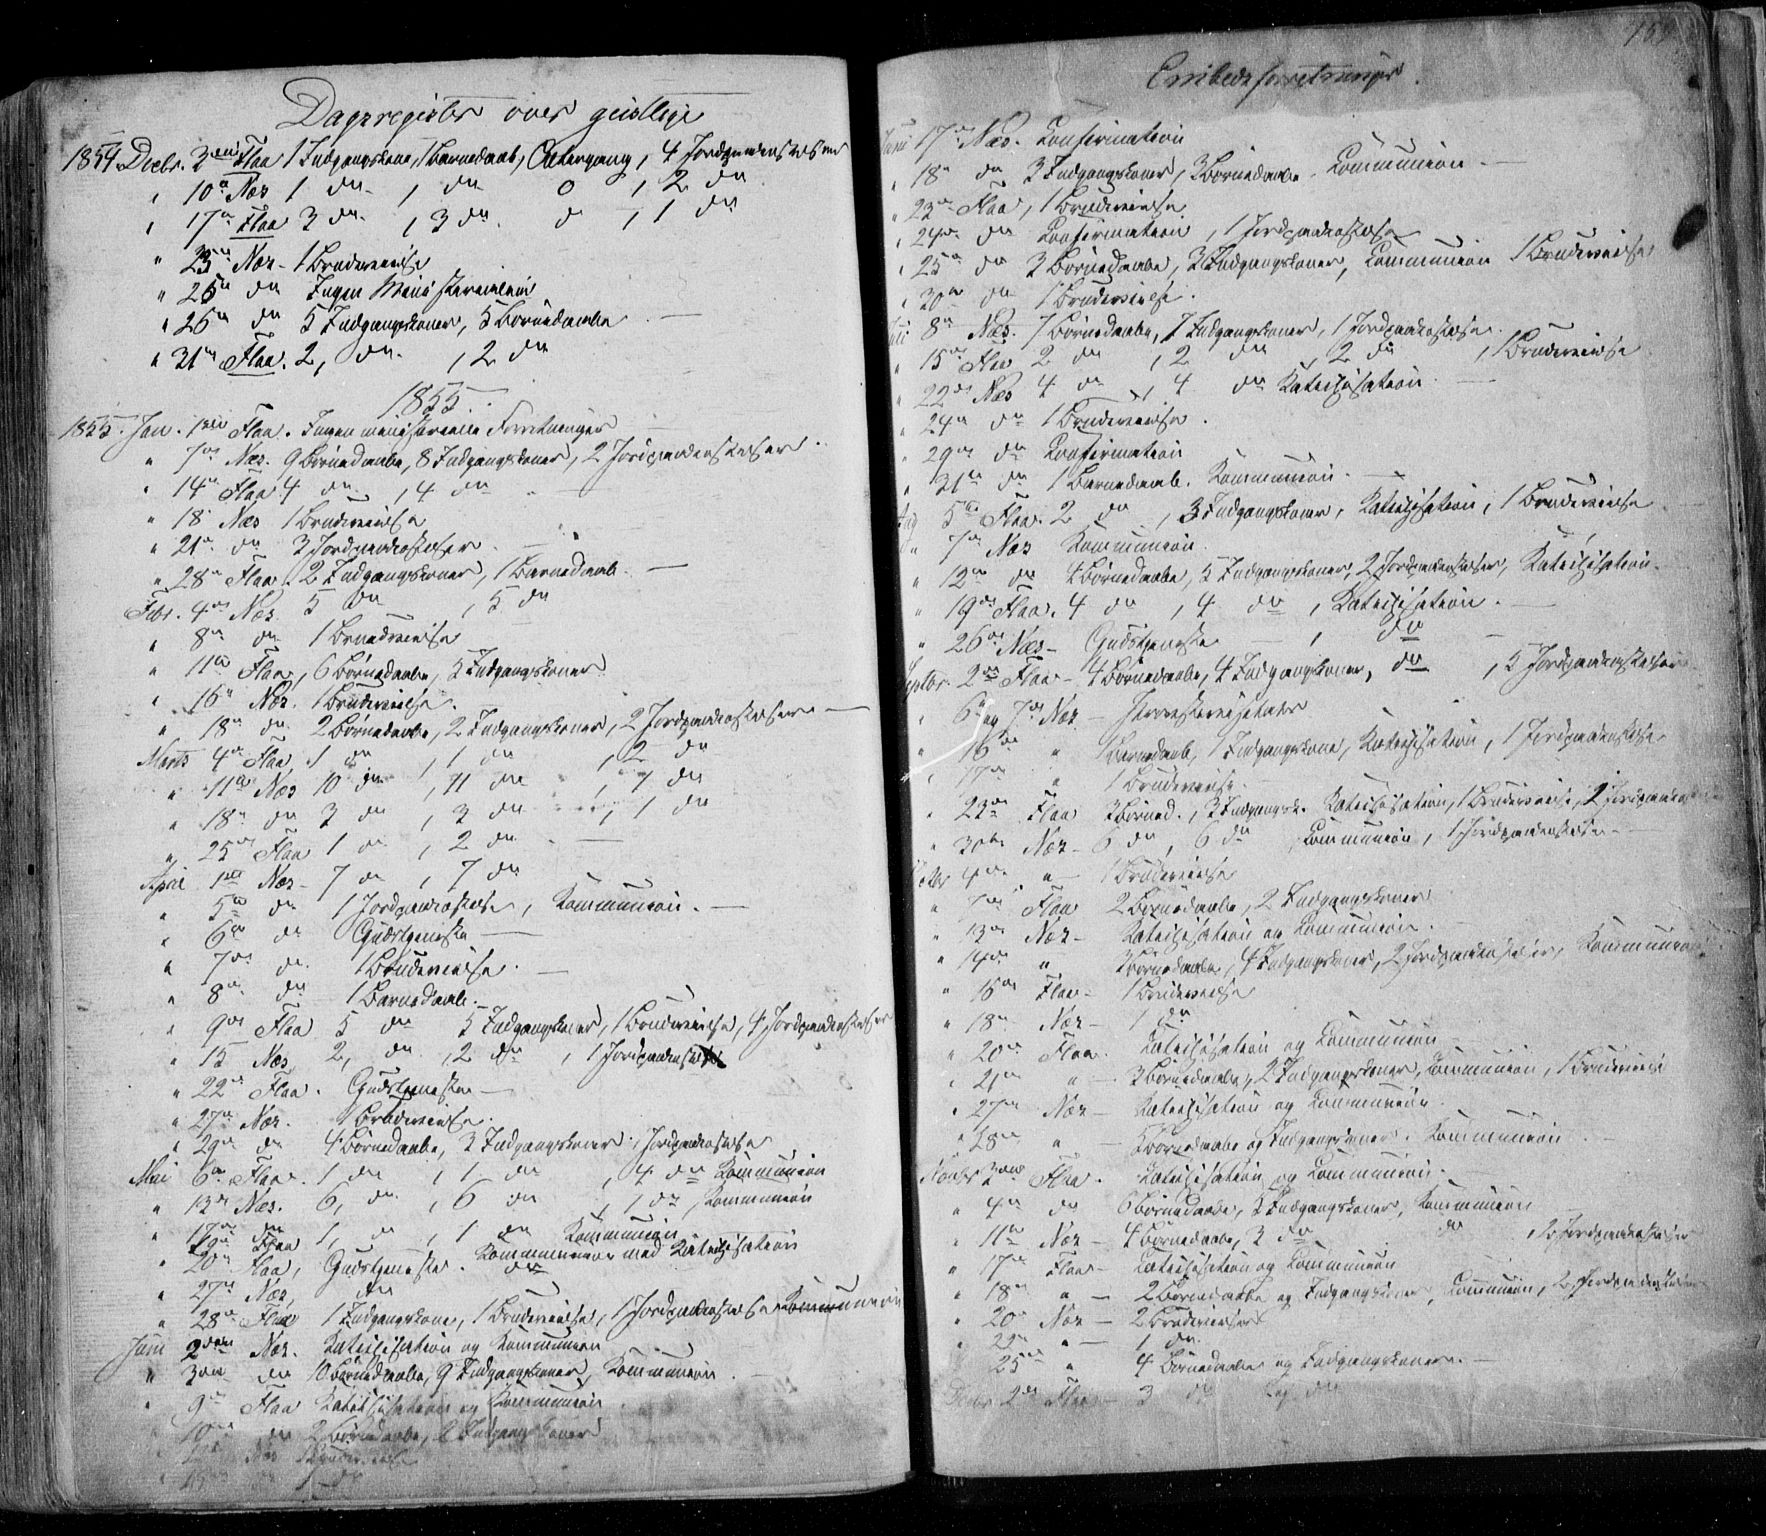 Dagsregister over geistlige
1854 Decbr. 3die Flaa 1 Indgangskone, 1 Barnedaab, 4 Jordpaakastelser
" 10de Næs 1 do , 1 do 0 , 2 do
" 17de Flaa 3 do , 3 do 0 , 1 do
" 23de Næs - 1 Brudevielse
" 25de do Ingen Ministerialia
" 26de do 5 Indgangskoner, 5 Børnedaabe
" 31te Flaa. 2, do , 2 do
1855.
1855. Jan. 1ste Flaa. Ingen ministerielle Forretninger
" 7de Næs. 9 Børnedaabe, 8 Indgangskoner, 2 Jordpaakastelser.
" 14de Flaa 4 do , 4 do
" 18 Næs 1 Brudevielse
" 21de do 3 Jordpaakastelser.
" 28de Flaa. 2 Indgangskoner, 1 Barnedaab.
Febr. 4de Næs 5 do , 5 do
" 8de do 1 Brudevielse
" 11te Flaa, 6 Børnedaabe, 5 Indgangskoner
" 16de Næs. 1 Brudevielse.
" 18de do 2 Børnedaabe, 2 Indgangskoner, 2 Jordpaakastelser
Marts 4de Flaa 1 do , 1 do , 2 do
" 11te Næs 10 do , 11 do , 1 do
" 18de do 3 do , 3 do , 1 do
" 25de Flaa 1 do , 2 do
April 1ste Næs - 7 do , 7 do
" 5te do 1 Jordpaakastelse, Kommunion.
" 6te do Gudstjeneste
" 7de do 1 Brudevielse.
" 8de do 1 Barnedaab.
" 9de Flaa 5 do 5 Indgangskoner, 1 Brudevielse, 4 Jordpaakastelser
" 15 Næs 2, do , 2 do , 1 Jordpaakastelse
" 22de Flaa. Gudstjeneste
" 27de Næs. 1 Brudevielse.
" 29de do 4 Børnedaabe, 3 Indgangskoner, Jordpaakastelse
Mai 6te Flaa. 1 do , 1 do , 4 do Kommunion
" 13de Næs. 6, do , 6 do , 1 do, Kommunion
" 17de do 1, do , 1 do Kommunion
" 20de Flaa, Gudstjeneste. Kommunion med Katechisation
" 27de Næs, do do
" 28de Flaa 1 Indgangskone, 1 Brudevielse, 1 Jordpaakastelse Kommunion
Juni 2den Næs. Katechisation og Kommunion
" 3die do 10 Børnedaabe, 9 Indgangskoner, Kommunion
" 9de Flaa Katechisation og Kommunion
" 10de do 2 Børnedaabe, 2 Indgangskoner
Næs 1 Brudevielse
" 15de do 1 do
Embedsforretninger.
Juni 17de Næs. Confirmation
" 18de do 3 Indgangskoner, 3 Børnedaabe. Communion.
" 23de Flaa, 1 Brudevielse
" 24de do Confirmation, 1 Jordpaakastelse
" 25de do 3 Børnedaabe, 3 Indgangskoner, Communion 1 Brudevielse
" 30te do 1 Brudevielse.
Juli 8de Næs. 7 Børnedaabe, 7 Indgangskoner, 1 Jordpaakastelse.
" 15de Flaa 2 do , 2 do , 2 do , 1 Brudevielse
" 22de Næs 4 do , 4 do Katechisation.
" 24de do 1 Brudevielse.
" 29de do Confirmation
" 31te do 1 Barnedaab. Kommunion.
Aug 5te Flaa. 2 do , 3 Indgangskoner, Katechisation, 1 Brudevielse
" 7de Næs Kommunion.
" 12te do 4 Børnedaabe, 5 Indgangskoner, 2 Jordpaakastelser, Katechisation.
" 19de Flaa. 4 do , 4 do , Katechisation.
" 26de Næs - Gudstjeneste , do
Septbr. 2den Flaa - 4 Børnedaabe, 4 Indgangskoner, do , 5 Jordpaakastelser
" 6te og 7de Næs - Provstevisitats
" 16de " 1 Barnedaab, 1 Indgangskone, Katechisation, 1 Jordpaakastelse
" 17de " 1 Brudevielse.
" 23de Flaa 3 Børned., 3 Indgangsk. Katechisation, 1 Brudevielse, 2 Jordpaakast
" 30te Næs - 6 do, 6 do Communion, 1 Jordpaakastelse
Octbr 4de " - 1 Brudevielse
" 7de Flaa 2 Børnedaabe, 2 Indgangskoner
" 13de Næs - Katechisation og Communion.
" 14de " 3 Børnedaabe, 4 Indgangskoner, 2 Jordpaakastelser, Kommunion
" 16de Flaa - 1 Brudevielse
" 18de Næs - 1 do
" 20de Flaa. Katechisation og Communion
" 21de " - 3 Børnedaabe, 2 Indgangskoner, Communion, 1 Brudevielse
" 27de Næs - Katechisation og Communion.
" 28de " Børnedaabe og Indgangskoner. Kommunion
Novbr 3die Flaa. Katechisation og Communion.
" 4de do 6 Børnedaabe, 5 Indgangskoner, Kommunion
" 11te Næs - 4 Børnedaabe, 3 do do 2 Jordpaakastelser
" 17de Flaa - Katechisation og Communion
" 18de " - 2 Børnedaabe og Indgangskoner, Communion, 2 Jordpaakastelser
" 20de Næs - 2 Brudevielser
" 22de " - 1 do.
" 25de " 4 Børnedaabe og Indgangskoner.
2den Flaa - 3 do og do